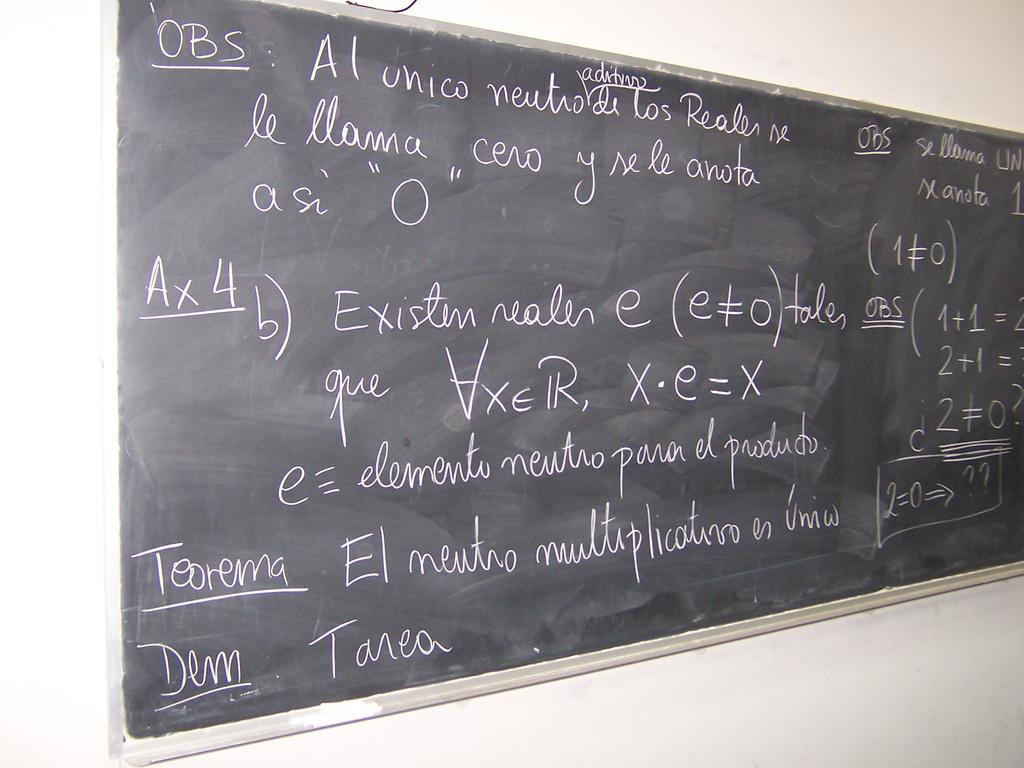 OBS: Al único neutro aditivo de los Reales se
le llama cero y se le anota
así "0"
Ax 4 b) Existen reales e (e≠0) tales
que ∀x∈ℝ, x·e=x
e≡ elemento neutro para el producto.
Teorema El neutro multiplicativo es único
Dem Tarea
OBS se llama UN
se anota 1
(1≠0)
OBS (1+1=2
2+1=
¿2≠0?
2=0⇒ ??